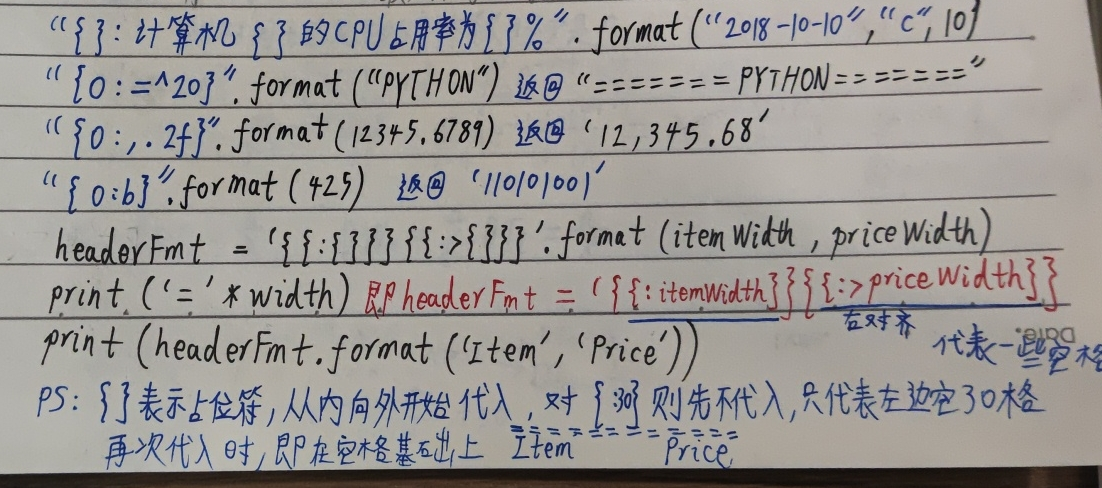 “{}:计算机{}的CPU占用率为{}%”.format(“2018-10-10”,“C”,10)
“{0:=^20}”.format(“PYTHON”) 返回 “=======PYTHON=======”
“{0:,.2f}”.format(12345.6789) 返回 ‘12,345.68’
“{0:b}”.format(425) 返回 ‘110101001’
headerFmt = ‘{{:{}}}{{:>{}}}’.format(itemWidth,priceWidth)
print(‘=’*width) 即headerFmt = ‘{{:itemWidth}}{{:>priceWidth}}
右对齐
print(headerFmt.format(‘Item’,‘Price’))
代表一些空格
Date:
PS:{}表示占位符,从内向外开始代入,对{:30}则先不代入,只代表左边空30格
再次代入时,即在空格基础上 ==========
Item Price